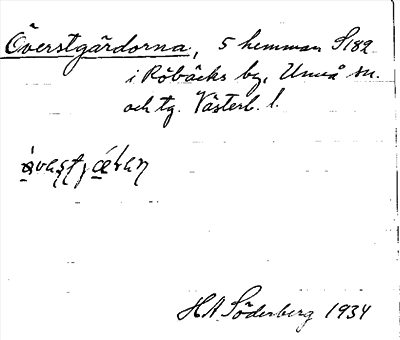 Överstgårdorna, 5 hemman S182
i Röbäcks by, Umeå sn.
och tg. Västerb. l.
H.A. Söderberg 1934